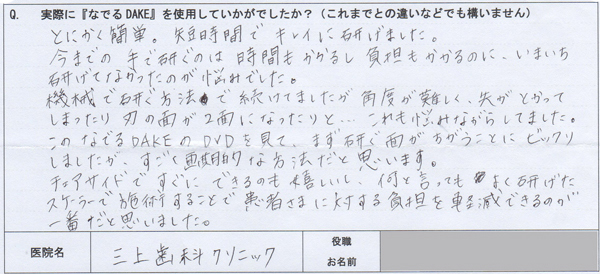 Q. 実際に『なでるDAKE』を使用していかがでしたか？（これまでとの違いなどでも構いません）
とにかく簡単。短時間でキレイに研げました。
今までの手で研ぐのは時間もかかるし負担もかかるのに、いまいち
研げてなかったのが悩みでした。
機械で研ぐ方法で続けてましたが角度が難しく、先がとがって
しまったり刃の面が2面になったりと…これも悩みながらしてました。
このなでるDAKEのDVDを見て、まず研ぐ面がちがうことにビックリ
しましたが、すごく画期的な方法だと思います。
チェアサイドですぐにできるのも嬉しいし、何と言ってもよく研げた
スケーラーで施術することで患者さまに対する負担を軽減できるのが
一番だと思いました。
医院名 三上歯科クリニック 役職
お名前